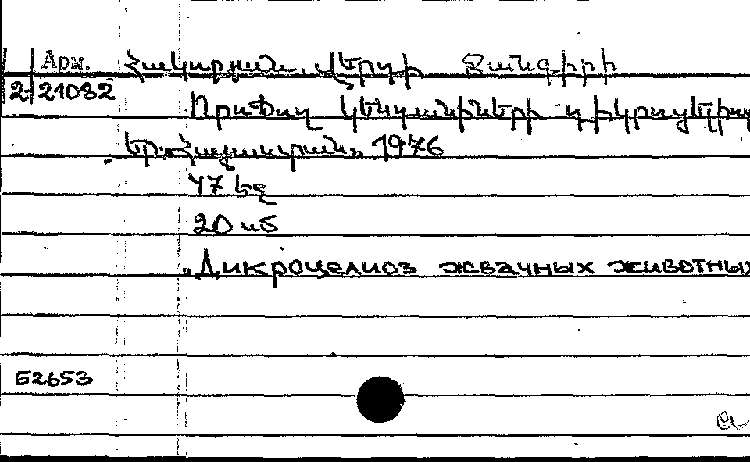 Арм. Հակոբյան, Վերդի Ջանգիրի
2 21082
Որոճող կենդանիների դիկրոցելիոզ
Եր., Հայաստան, 1976
47 էջ
20 սմ
"Дикроцелиоз жвачных животных
Б2653